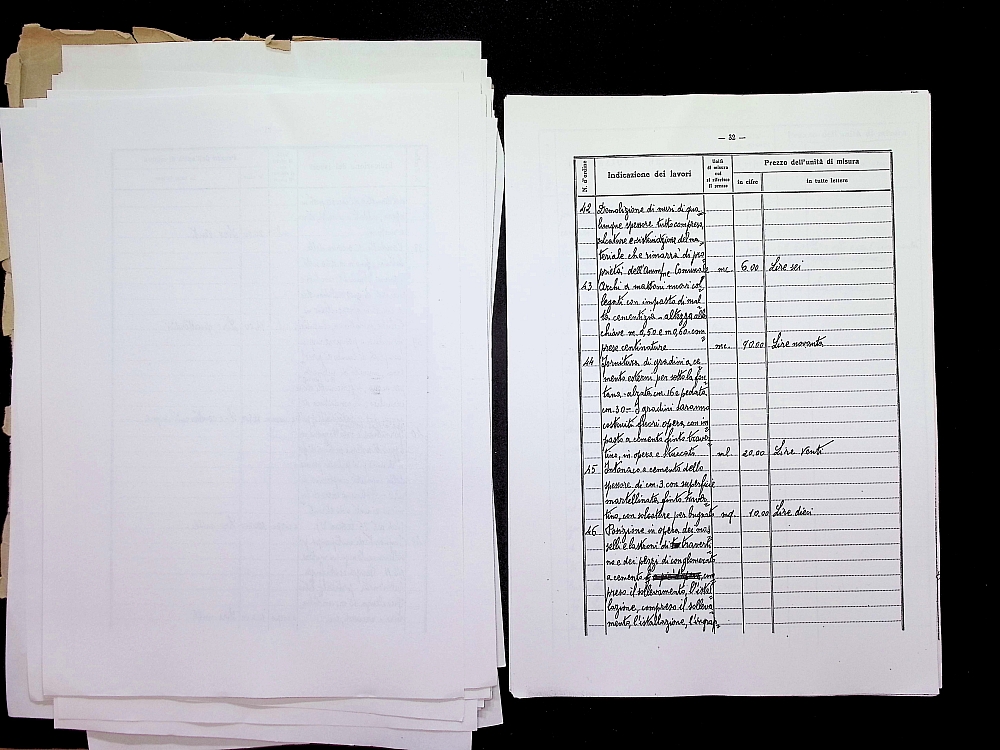 — 32 —
N. d'ordine
Indicazione dei lavori
Unità di misura cui si riferisce il prezzo
Prezzo dell'unità di misura
in cifre
in tutte lettere
42 Demolizione di muri di qua-
lunque spessore tutto compreso,
e sistemazione del ma-
teriale che rimarrà di pro-
prietà dell'Amm.ne Comunale mc. 6.00 Lire sei
43 Archi a mattoni murati col-
legati con impasto di mal-
ta cementizia - altezza alla
chiave m. 0,50 e m 0,60 - com-
prese centinature mc. 90.00 Lire novanta
44 Fornitura di gradini a ce-
mento esterni per sotto la fon-
tana - alzata cm. 16 e pedata
cm. 30 - I gradini saranno
costruiti fuori opera, con im-
pasto a cemento finto traver-
tino, in opera e stuccato ml. 20.00 Lire Venti
45 Intonaco a cemento dello
spessore di cm. 3 con superficie
martellinata, finto traver-
tino, con solcature per bugnato mq. 10.00 Lire dieci
46 Posizione in opera dei mas-
selli e lastroni di traverti-
no e dei pezzi di conglomerato
a cemento com-
preso il sollevamento, l'istal-
lazione, compreso il solleva-
mento, l'istallazione, l'ingrap-